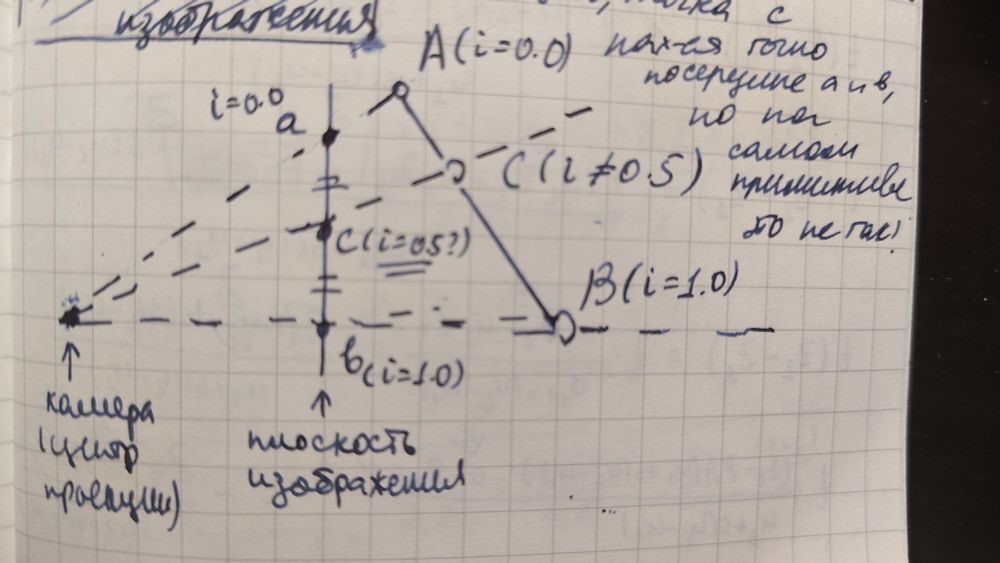 изображения
точка с
нах-ся точно
посередине a и b,
но на
самом
примитиве
это не так!
A(i=0.0)
i=0.0
a
C(i≠0.5)
c(i=0.5?)
B(i=1.0)
b(i=1.0)
камера
(центр
проекции)
плоскость
изображения